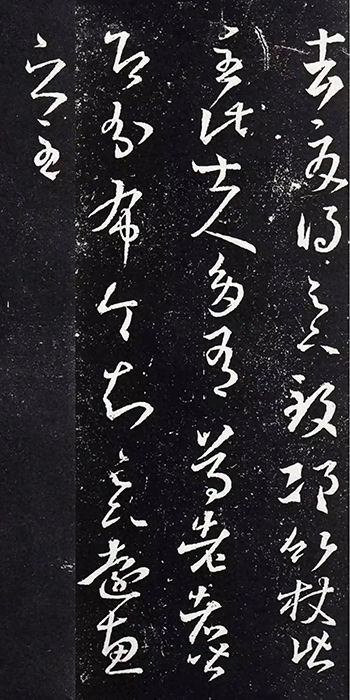 去夏得足下致邛竹杖皆
至此士人多有尊老者皆
即分布令知足下遠惠
之至